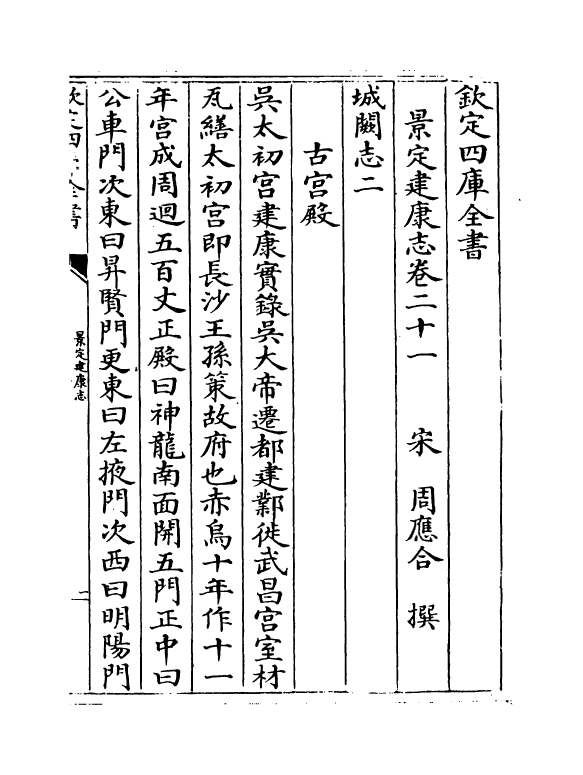 欽定四庫全書
景定建康志卷二十一　宋　周應合　撰
城闕志二
古宮殿
吳太初宮建康實錄吳大帝遷都建鄴徙武昌宮室材
瓦繕太初宮即長沙王孫策故府也赤烏十年作十一
年宮成周迴五百丈正殿曰神龍南面開五門正中曰
公車門次東曰昇賢門更東曰左掖門次西曰明陽門
欽定四庫全書
景定建康志
一